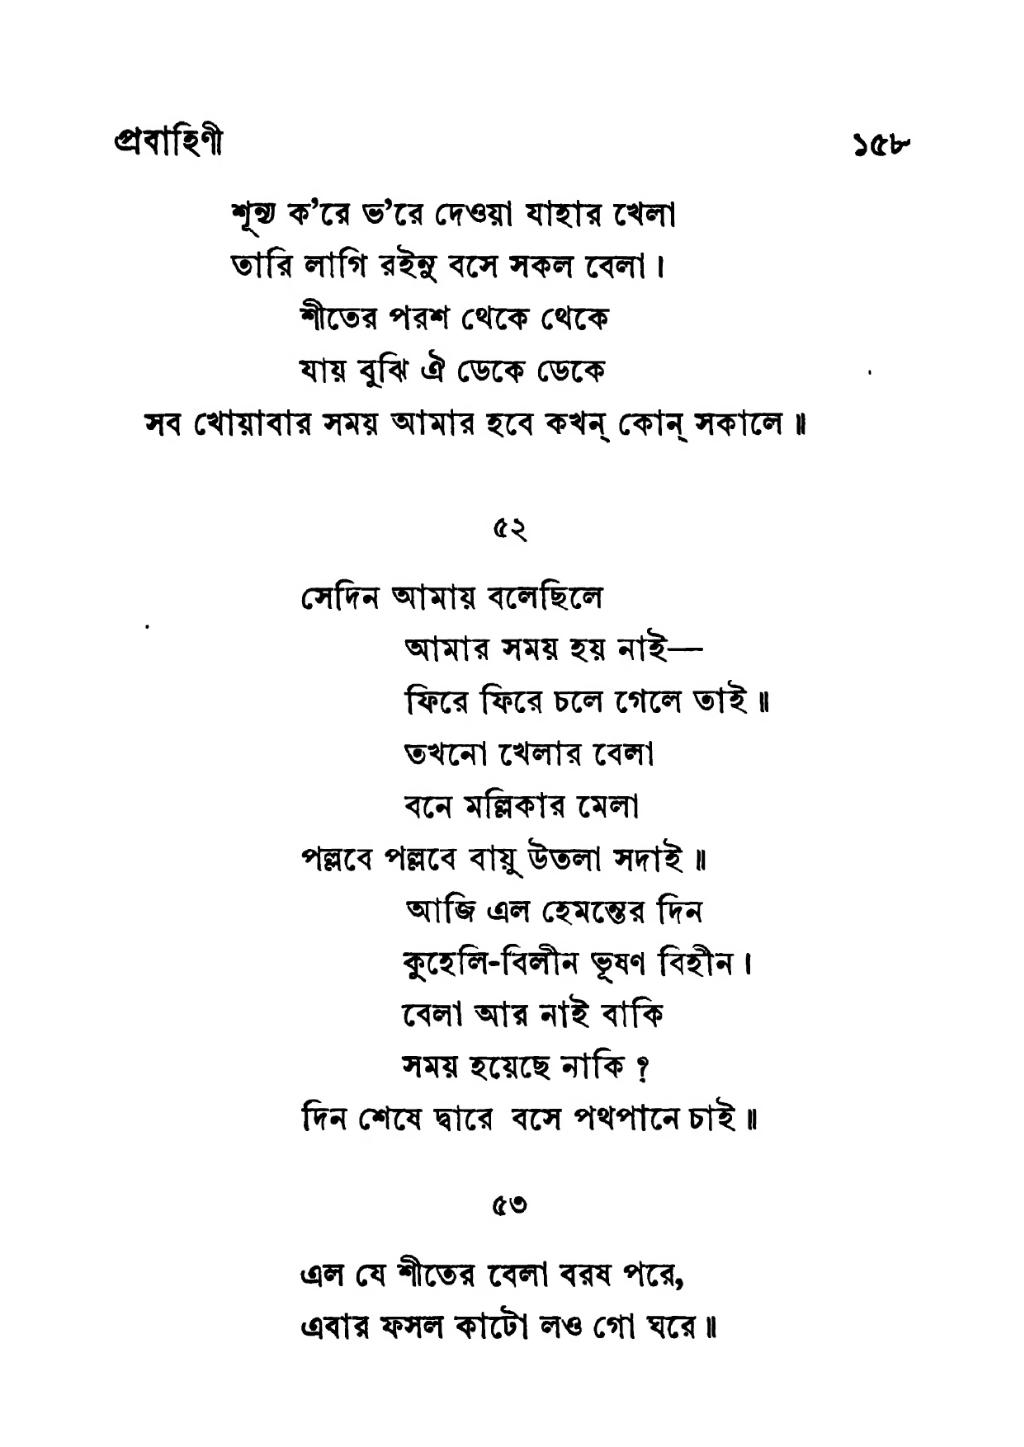 প্রবাহিণী ১৫৮
শূন্য ক'রে ভ'রে দেওয়া যাহার খেলা
তারি লাগি রইনু বসে সকল বেলা।
শীতের পরশ থেকে থেকে
যায় বুঝি ঐ ডেকে ডেকে
সব খোয়াবার সময় আমার হবে কখন্ কোন্ সকালে॥
৫২
সেদিন আমায় বলেছিলে
আমার সময় হয় নাই—
ফিরে ফিরে চলে গেলে তাই॥
তখনো খেলার বেলা
বনে মল্লিকার মেলা
পল্লবে পল্লবে বায়ু উতলা সদাই॥
আজি এল হেমন্তের দিন
কুহেলি-বিলীন ভূষণ বিহীন।
বেলা আর নাই বাকি
সময় হয়েছে নাকি ?
দিন শেষে দ্বারে বসে পথপানে চাই॥
৫৩
এল যে শীতের বেলা বরষ পরে,
এবার ফসল কাটো লও গো ঘরে॥